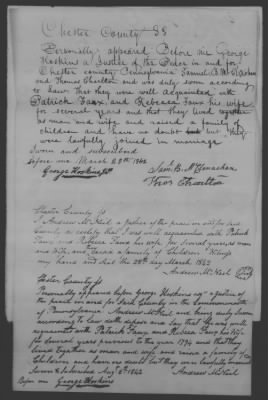 Chester County SS
Personally appeared Before me George
Hoskins a Justice of the Peace in and for
Chester county Pennsylvania Samuel B. McClenachan
and Thomas Charlton and was duly sworn according
to law that they were well Acquainted with
Patrick Faux and Rebecca Faux his wife
for several years and that they lived together
as man and wife and raised a family of
children and have no doubt but they
were lawfully joined in marriage
Sworn and subscribed
before me March 1842
George Hoskins Saml B. McClenachan
Thos Charlton
Chester County SS
I Andrew McKeil a Justice of the peace in and for said
County do certify that I was well acquainted with Patrick
Faux and Rebecca Faux his wife, for several years as man
and wife, and raised a family of Children Witness
my hand and seal the 28th day March 1842
Andrew McKeil
Chester County SS
Personally appeared before George Hoskins esqr a Justice of
the peace in and for said County in the Commonwealth
of Pennsylvania Andrew McKeil and being duly sworn
according to law doth depose and say that he was well
acquainted with Patrick Faux and Rebecca Faux his wife
for several years previous to the year 1794 and that they
lived together as man and wife and raised a family of
Children and have no doubt but they were lawfully married
Sworn & subscribed Aug 6th 1842 Andrew McKeil
Before me George Hoskins